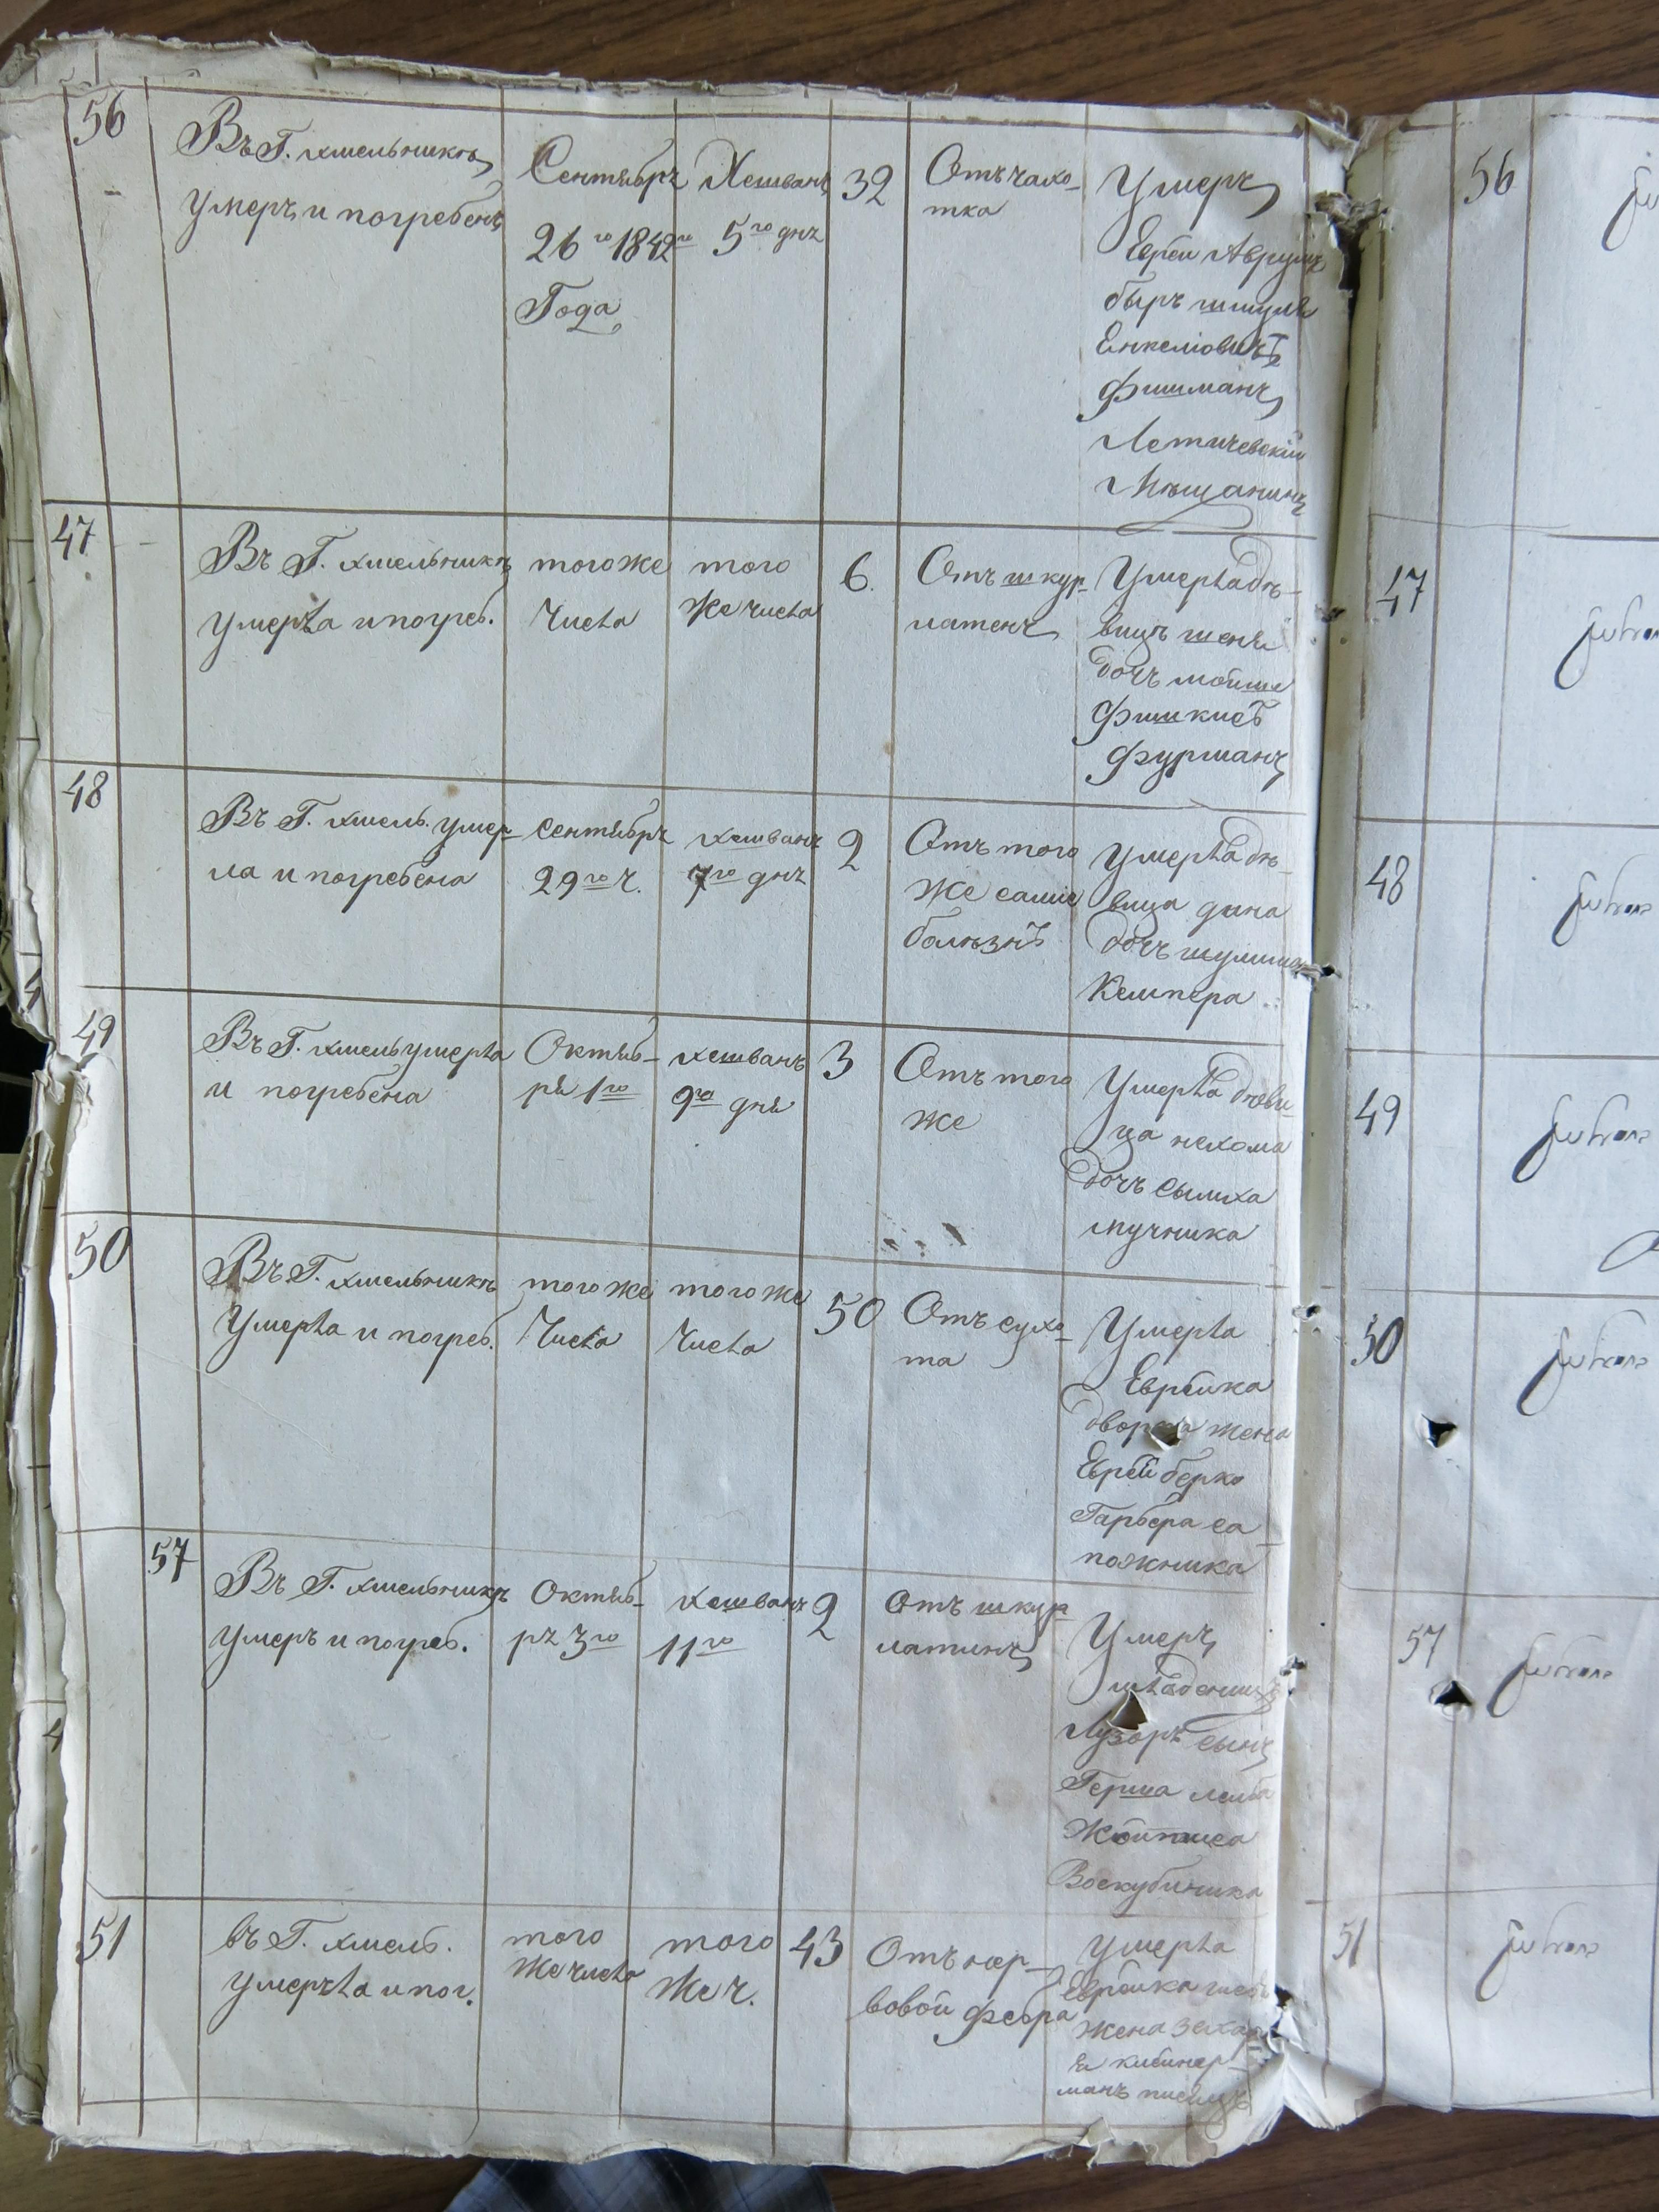 56
Въ Г. хмельникъ
Умеръ и погребенъ
Сентябръ
26го 1842го
Года
Хешванъ
5го днъ
32
Отъ чахо-
тка
Умеръ
Еврей Аврумъ
быръ шмуля
Енкеліовичъ
Фишманъ
Летичевскій
Мѣщанинъ
56
47
Въ Г. хмельникъ
Умерла и погреб.
того же
Числа
того
же числа
6.
Отъ шкур-
латенъ
Умерла дѣ-
вицъ шеня
дочъ мойше
Фишкис
Фурманъ
47
48
Въ Г. хмель. умер-
ла и погребена
Сентябръ
29го ч.
хешванъ
7го днъ
2
Отъ того
же самие
болѣзнѣ
Умерла дѣ-
вица дина
дочъ
Кемпера
48
49
Въ Г. хмель умерла
и погребена
Октяб-
ря 1го
хешванъ
9го дня
3
Отъ того
же
Умерла дѣви-
ца нехома
дочъ сымха
мучника
49
50
Въ Г. хмельникъ
Умерла и погреб.
того же
Числа
того же
Числа
50
Отъ сухо-
та
Умерла
Еврейка
жена
Еврей берко
Гарбера са-
пожника
50
57
Въ Г. хмельникъ
Умеръ и погреб.
Октяб-
ръ 3го
хешванъ
11го
2
Отъ шкур
латинъ
Умеръ
младенецъ
Лузоръ сынъ
Герша лейба
57
51
въ Г. хмель.
умерла и пог.
того
же числа
того
же ч.
43
Отъ нер-
вовой февра
Умерла
Еврейка
жена
51